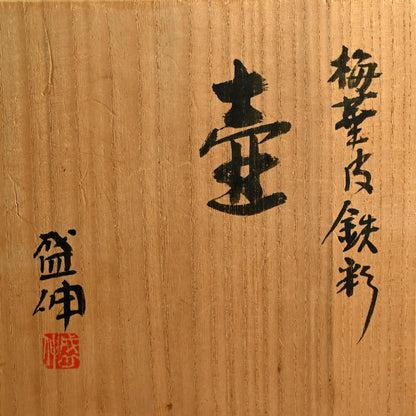 梅華皮鉄彩
壷
盛伸